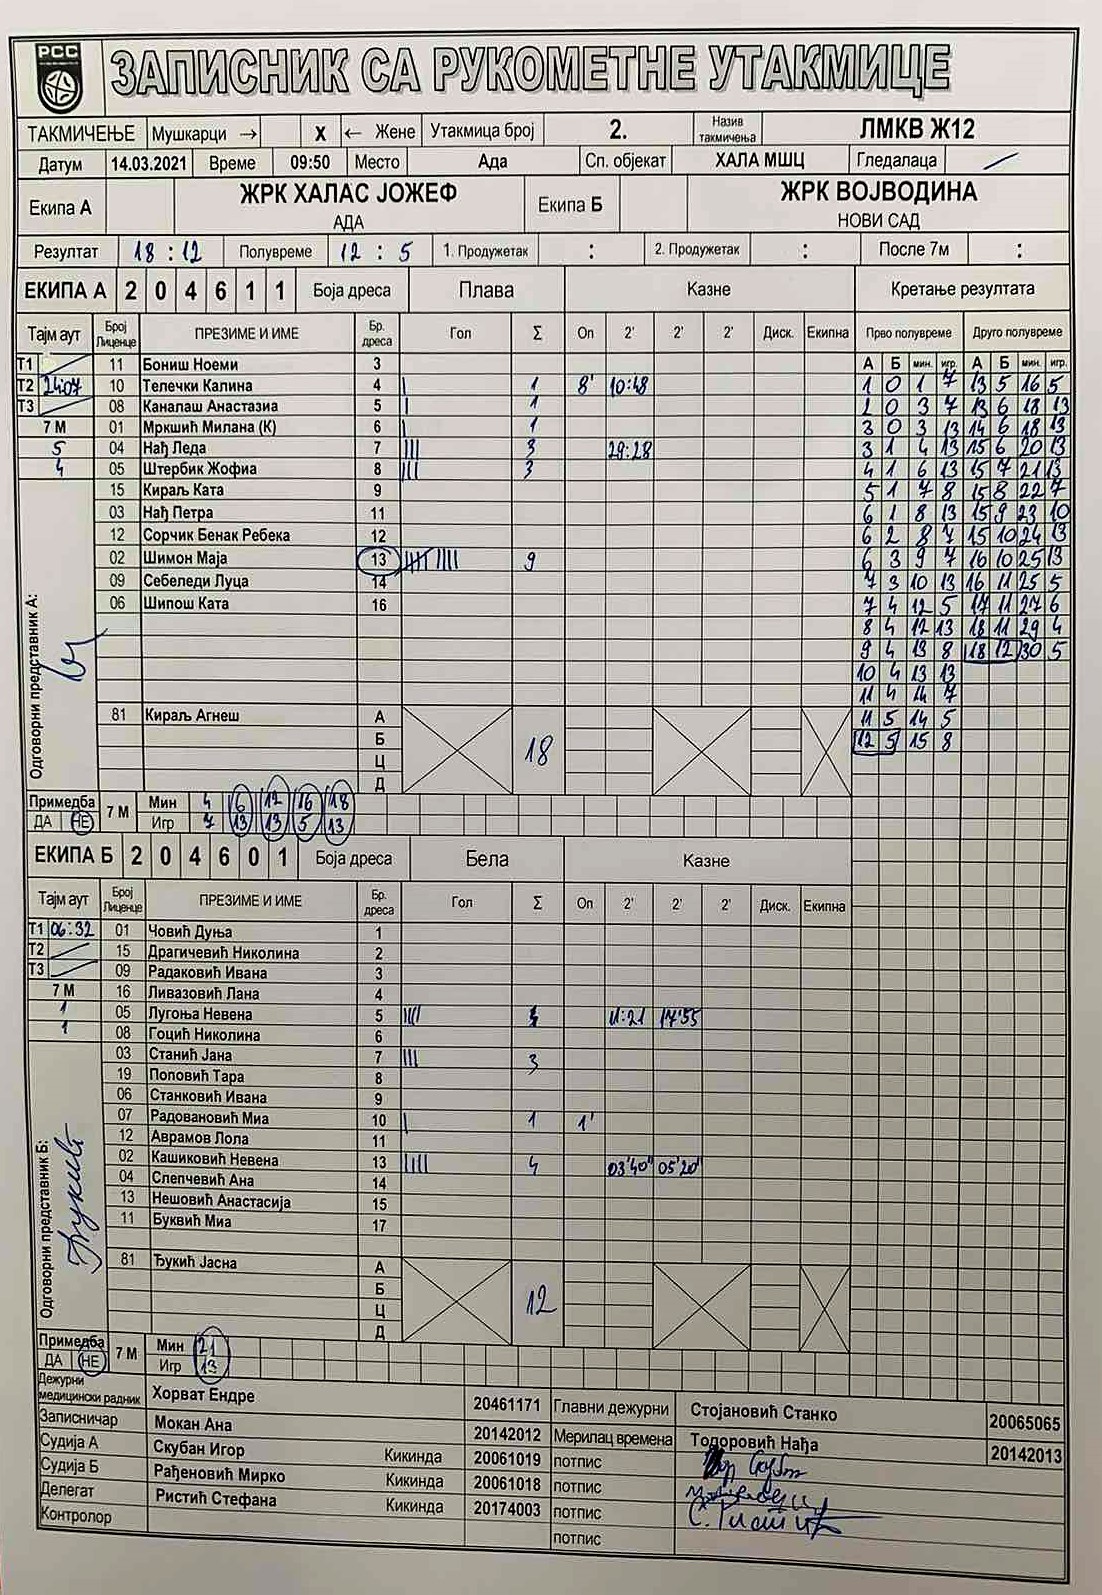 РСС
ЗАПИСНИК СА РУКОМЕТНЕ УТАКМИЦЕ
ТАКМИЧЕЊЕ Мушкарци → X ← Жене Утакмица број 2. Назив такмичења ЛМКВ Ж12
Датум 14.03.2021 Време 09:50 Место Ада Сп. објекат ХАЛА МШЦ Гледалаца
Екипа А ЖРК ХАЛАС ЈОЖЕФ Екипа Б ЖРК ВОЈВОДИНА
АДА НОВИ САД
Резултат 18 : 12 Полувреме 12 : 5 1. Продужетак : 2. Продужетак : После 7м :
ЕКИПА А 2 0 4 6 1 1 Боја дреса Плава Казне Кретање резултата
Тајм аут Број Лиценце ПРЕЗИМЕ И ИМЕ Бр. дреса Гол Σ Оп 2' 2' 2' Диск. Екипна Прво полувреме Друго полувреме
Т1 11 Бониш Ноеми 3 А Б мин. игр. А Б мин. игр.
Т2 24:07 10 Телечки Калина 4 | 1 8' 10:48 1 0 1 7 13 5 16 5
Т3 08 Каналаш Анастазиа 5 | 1 2 0 3 7 13 6 18 13
7 М 01 Мркшић Милана (К) 6 | 1 3 0 3 13 14 6 18 13
5 04 Нађ Леда 7 ||| 3 29:28 3 1 4 13 15 6 20 13
4 05 Штербик Жофиа 8 ||| 3 4 1 6 13 15 7 21 13
15 Кираљ Ката 9 5 1 7 8 15 8 22 7
03 Нађ Петра 11 6 1 8 13 15 9 23 10
12 Сорчик Бенак Ребека 12 6 2 8 7 15 10 24 13
02 Шимон Маја 13 |||| |||| 9 6 3 9 7 16 10 25 13
09 Себеледи Луца 14 7 3 10 13 16 11 25 5
06 Шипош Ката 16 7 4 12 5 17 11 27 6
8 4 12 13 18 11 29 4
9 4 13 8 18 12 30 5
10 4 13 13
11 4 14 7
81 Кираљ Агнеш А 11 5 14 5
Б 18 12 5 15 8
Ц
Д
Одговорни представник А:
Примедба 7 М Мин 4 6 12 16 18
ДА НЕ Игр 7 13 13 5 13
ЕКИПА Б 2 0 4 6 0 1 Боја дреса Бела Казне
Тајм аут Број Лиценце ПРЕЗИМЕ И ИМЕ Бр. дреса Гол Σ Оп 2' 2' 2' Диск. Екипна
Т1 06:32 01 Човић Дуња 1
Т2 15 Драгичевић Николина 2
Т3 09 Радаковић Ивана 3
7 М 16 Ливазовић Лана 4
1 05 Лугоња Невена 5 |||| 4 11:21 17'55
1 08 Гоцић Николина 6
03 Станић Јана 7 ||| 3
19 Поповић Тара 8
06 Станковић Ивана 9
07 Радовановић Миа 10 | 1 1'
12 Аврамов Лола 11
02 Кашиковић Невена 13 |||| 4 03'40" 05'20"
04 Слепчевић Ана 14
13 Нешовић Анастасија 15
11 Буквић Миа 17
81 Ђукић Јасна А
Б 12
Ц
Д
Одговорни представник Б: Ђукић
Примедба 7 М Мин 21
ДА НЕ Игр 13
Дежурни медицински радник Хорват Ендре 20461171 Главни дежурни Стојановић Станко 20065065
Записничар Мокан Ана 20142012 Мерилац времена Тодоровић Нађа 20142013
Судија А Скубан Игор Кикинда 20061019 потпис
Судија Б Рађеновић Мирко Кикинда 20061018 потпис
Делегат Ристић Стефана Кикинда 20174003 потпис С. Ристић
Контролор потпис